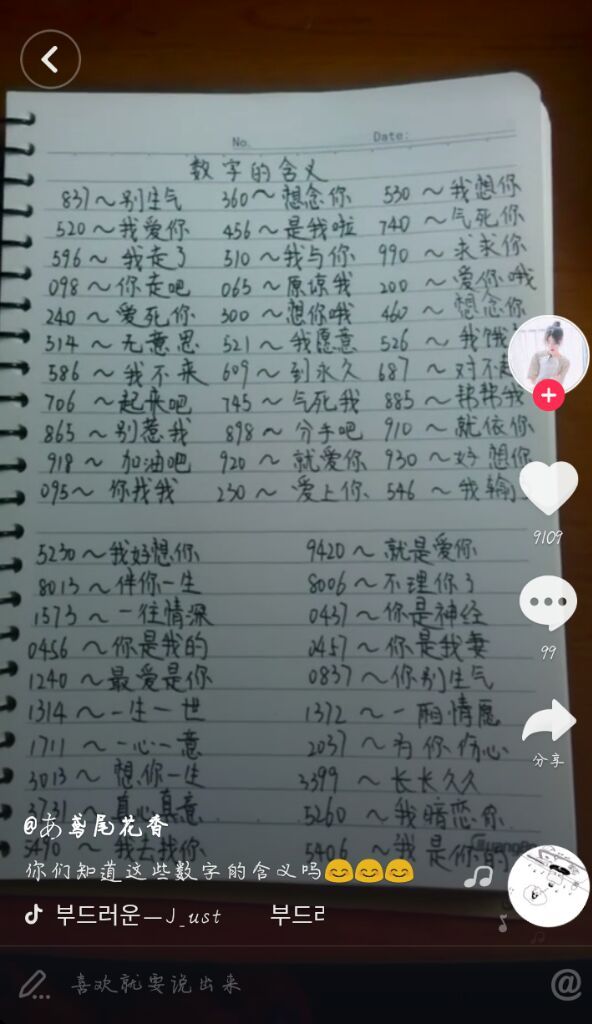 No. Date:
数字的含义
837～别生气 360～想念你 530～我想你
520～我爱你 456～是我啦 740～气死你
596～我走了 510～我与你 990～求求你
098～你走吧 065～原谅我 200～爱你哦
240～爱死你 300～想你哦 460～想念你
514～无意思 521～我愿意 526～我饿
586～我不来 609～到永久 687～对不起
706～起来吧 745～气死我 885～帮帮我
865～别惹我 898～分手吧 910～就依你
918～加油吧 920～就爱你 930～好想你
095～你找我 230～爱上你 546～我输
5230～我好想你 9420～就是爱你
8013～伴你一生 8006～不理你了
1573～一往情深 0437～你是神经
0456～你是我的 0457～你是我妻
1240～最爱是你 0837～你别生气
1314～一生一世 1372～一厢情愿
1711～一心一意 2037～为你伤心
3013～想你一生 3399～长长久久
3731～真心真意 5260～我暗恋你
5490～我去找你 5406～我是你的
9109
99
分享
@あ鸢尾花香
你们知道这些数字的含义吗😊😊😊
부드러운—J_ust 부드러
喜欢就要说出来
@